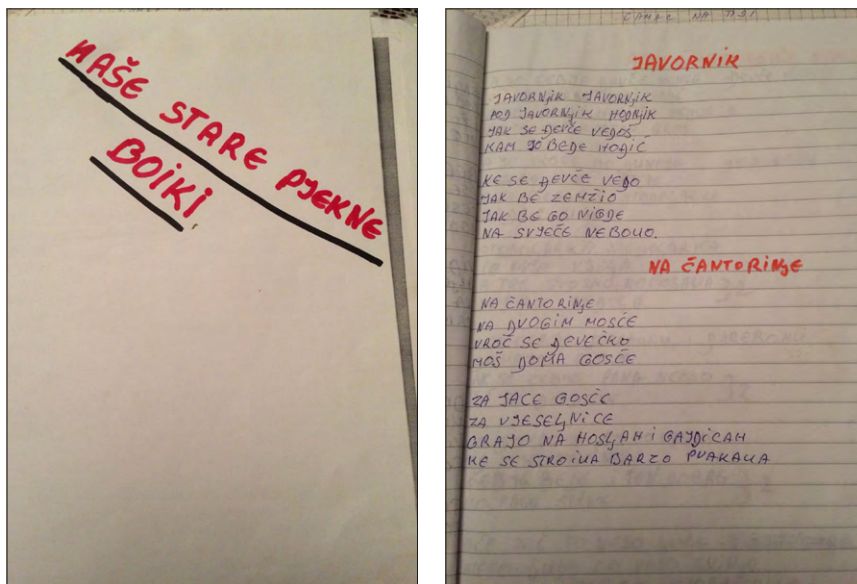 NAŠE STARE PJEKNE
BOJKI
JAVORNIK
JAVORNJIK JAVORNJIK
POD JAVORNJIK HODNJIK
JAK SE DEVČE VEDOŠ
KAM JO BEDE HODIĆ
KE SE DEVČE VEDO
JAK BE ZEMŽIO
JAK BE GO NIGDE
NA SVJEČE NEBOUO.
NA ČANTORINJE
NA ČANTORINJE
NA DUOGIM MOSĆE
UROČ SE DEVEČKO
MOŠ DOMA GOSĆE
ZA JACE GOSĆE
ZA VJESELNICE
GRAJO NA HOSLJAH I GAJDICAH
KE SE STROJUA BARZO PUAKAUA